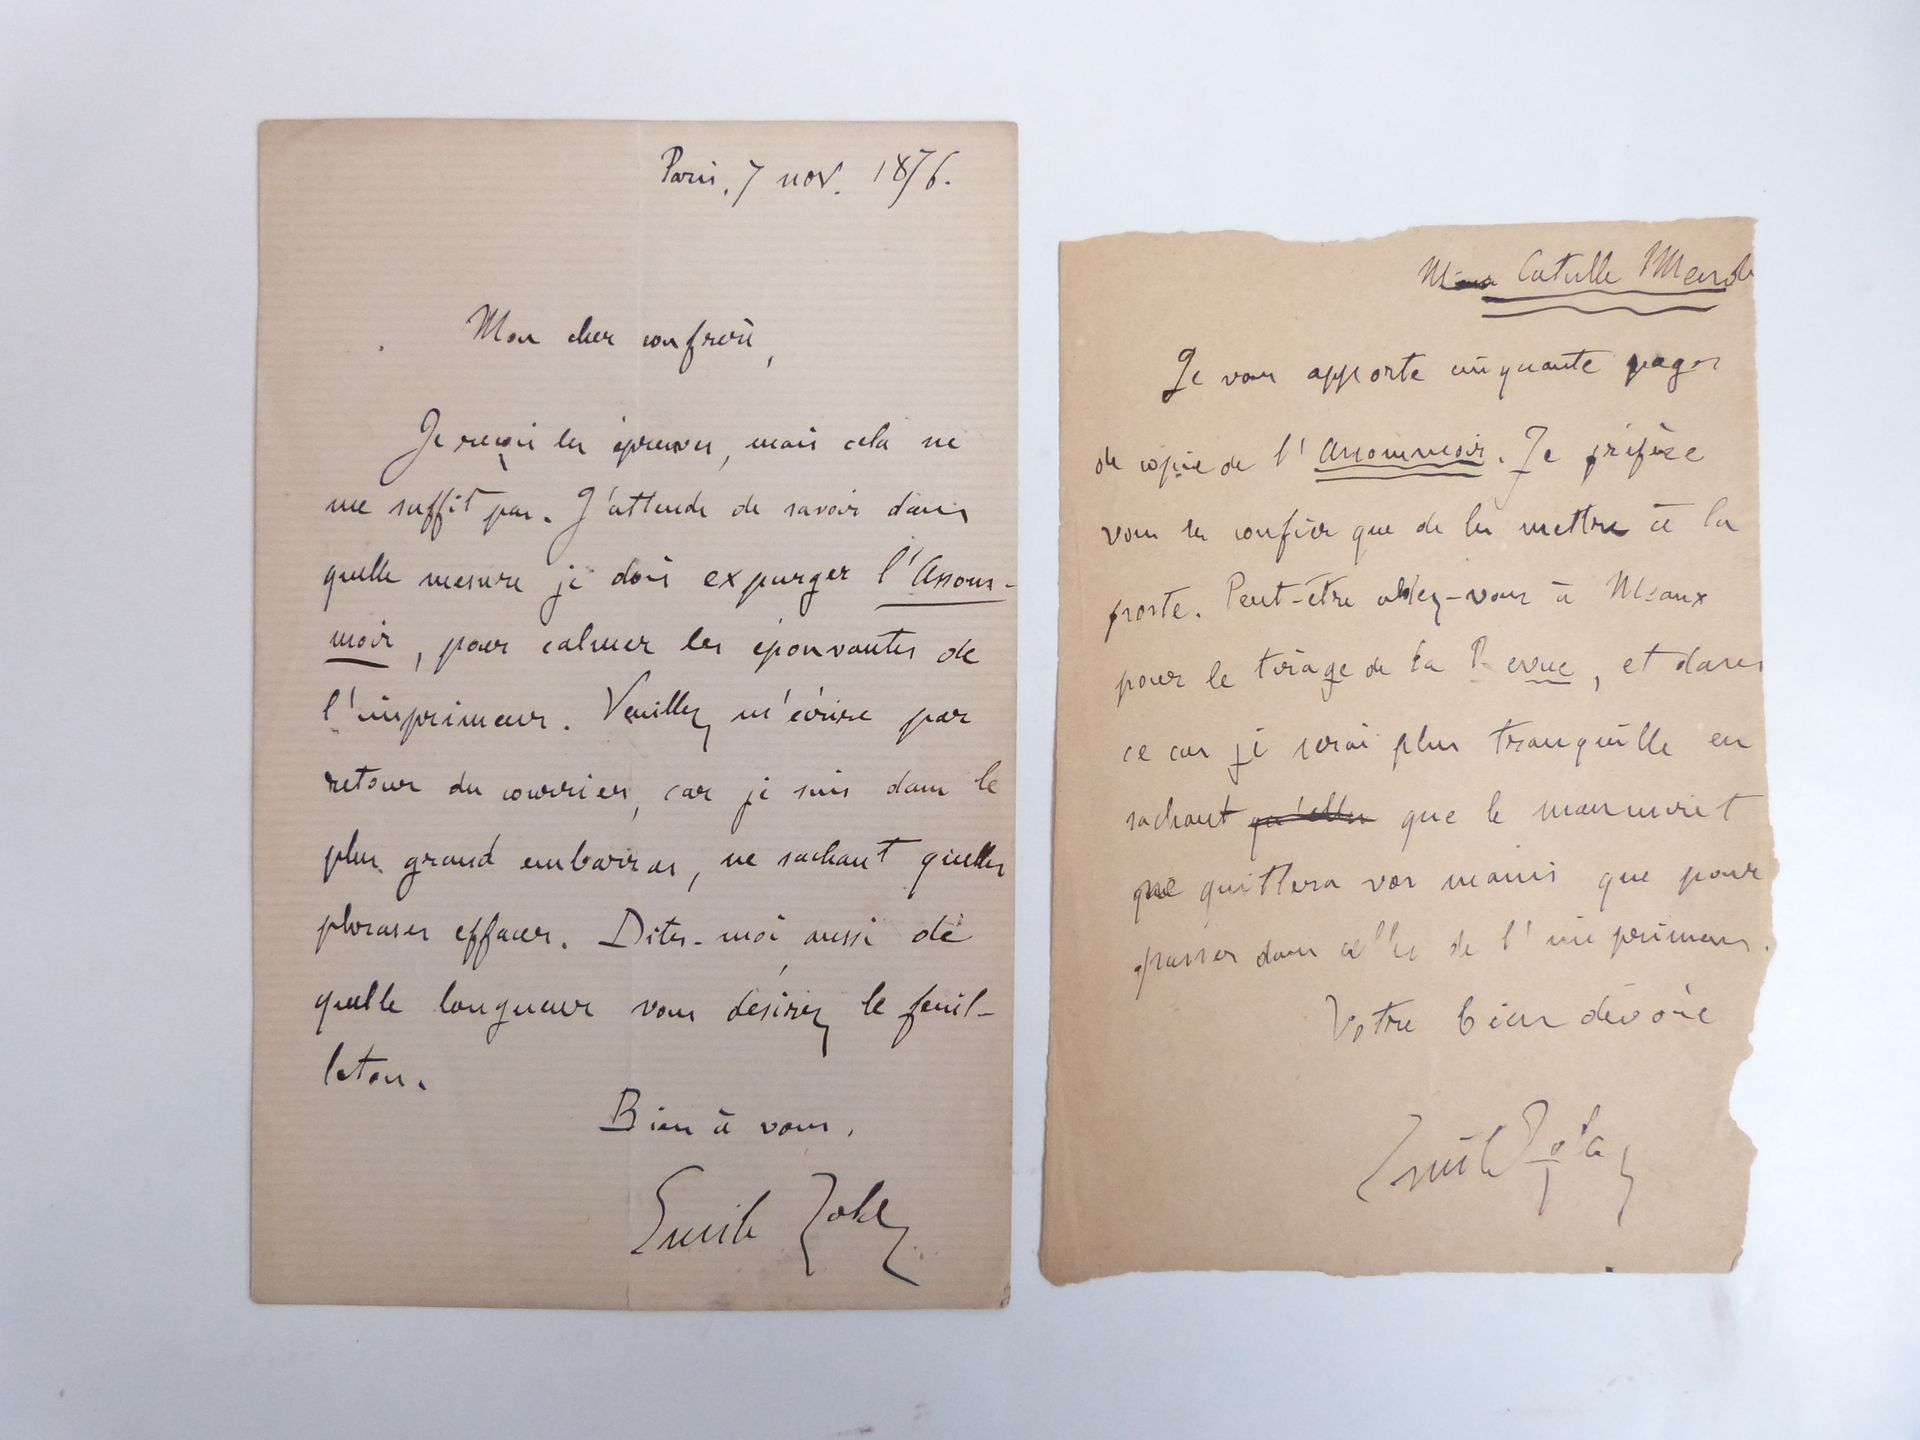 Paris, 7 nov. 1876.
Mon cher confrère,
Je reçois les épreuves, mais cela ne
me suffit pas. J'attends de savoir dans
quelle mesure je dois expurger l'Assom-
moir, pour calmer les épouvantes de
l'imprimeur. Veuillez m'écrire par
retour du courrier, car je suis dans le
plus grand embarras, ne sachant quelles
phrases effacer. Dites-moi aussi de
quelle longueur vous désirez le feuil-
leton.
Bien à vous,
Emile Zola
Catulle Mendès
Je vous apporte cinquante pages
de copie de l'Assommoir. Je préfère
vous les confier que de les mettre à la
poste. Peut-être allez-vous à Meaux
pour le tirage de la Revue, et dans
ce cas je serai plus tranquille en
sachant qu'elles que le manuscrit
ne quittera vos mains que pour
passer dans celles de l'imprimeur.
Votre bien dévoué
Emile Zola